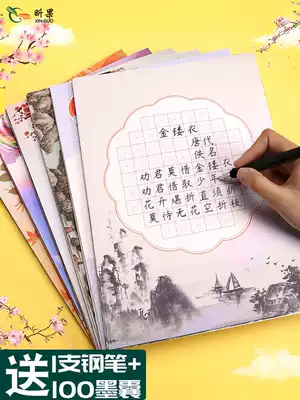 昕果
XIN GUO
金缕衣
唐代
佚名
劝君莫惜金缕衣
劝君惜取少年
花开堪折直须折
莫待无花空折枝
送 1支钢笔+
100墨囊